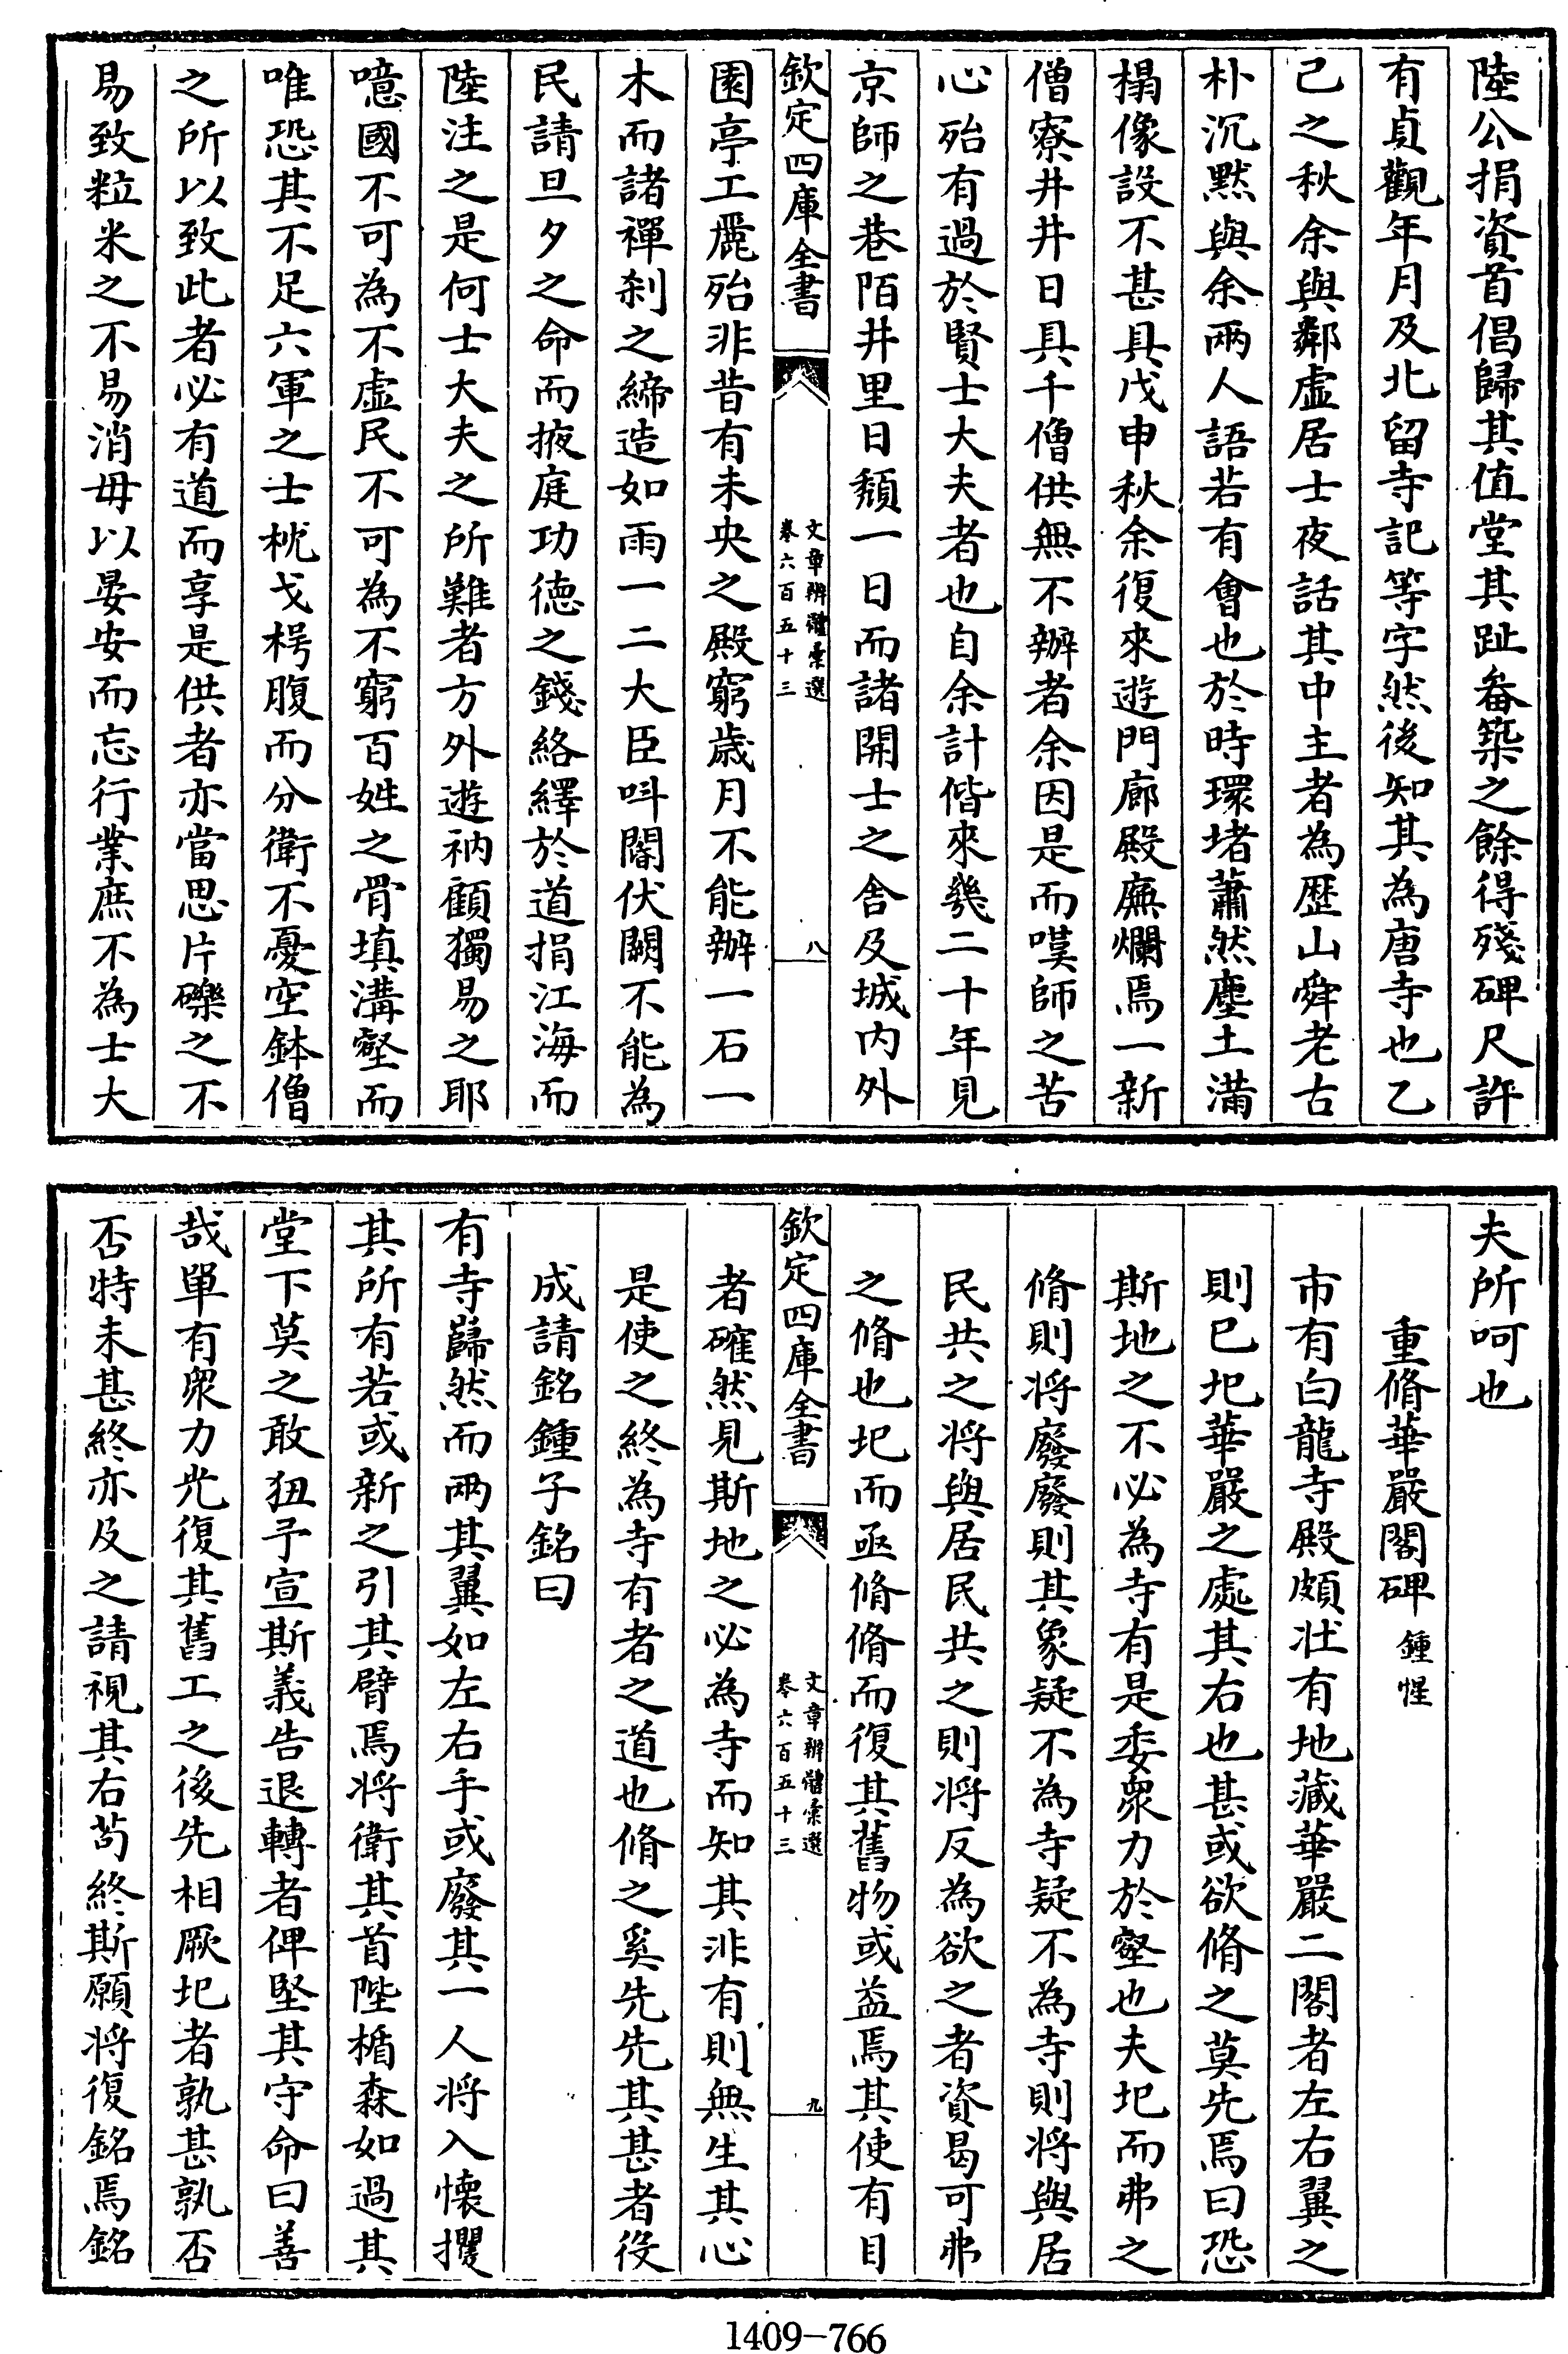 陸公捐資首倡歸其值堂其趾畚築之餘得殘碑尺許
有貞觀年月及北留寺記等字然後知其為唐寺也乙
己之秋余與鄰虛居士夜話其中主者為歷山舜老古
朴沉默與余兩人語若有會也於時環堵蕭然塵土滿
榻像設不甚具戊申秋余復來遊門廊殿廡爛焉一新
僧寮井井日具千僧供無不辦者余因是而嘆師之苦
心殆有過於賢士大夫者也自余計偕來幾二十年見
京師之巷陌井里日頽一日而諸開士之舍及城内外
欽定四庫全書
文章辨體彙選
卷六百五十三
八
園亭工麗殆非昔有未央之殿窮歲月不能辦一石一
木而諸禪刹之締造如雨一二大臣呌閽伏闕不能為
民請旦夕之命而掖庭功德之錢絡繹於道捐江海而
陸注之是何士大夫之所難者方外遊衲顧獨易之耶
噫國不可為不虛民不可為不窮百姓之骨填溝壑而
唯恐其不足六軍之士枕戈枵腹而分衛不憂空鉢僧
之所以致此者必有道而享是供者亦當思片礫之不
易致粒米之不易消毋以晏安而忘行業庶不為士大
夫所呵也
重脩華嚴閣碑 鍾惺
市有白龍寺殿頗壯有地藏華嚴二閣者左右翼之
則已圮華嚴之處其右也甚或欲脩之莫先焉曰恐
斯地之不必為寺有是委衆力於壑也夫圮而弗之
脩則将廢廢則其象疑不為寺疑不為寺則將與居
民共之将與居民共之則将反為欲之者資曷可弗
之脩也圮而亟脩脩而復其舊物或益焉其使有目
欽定四庫全書
文章辨體彙選
卷六百五十三
九
者確然見斯地之必為寺而知其非有則無生其心
是使之終為寺有者之道也脩之奚先先其甚者役
成請銘鍾子銘曰
有寺巋然而兩其翼如左右手或廢其一人将入懷攫
其所有若或新之引其臂焉将衛其首陛楯森如過其
堂下莫之敢狃予宣斯義告退轉者俾堅其守命曰善
哉單有衆力光復其舊工之後先相厥圮者孰甚孰否
否特未甚終亦及之請視其右苟終斯願将復銘焉銘
1409-766